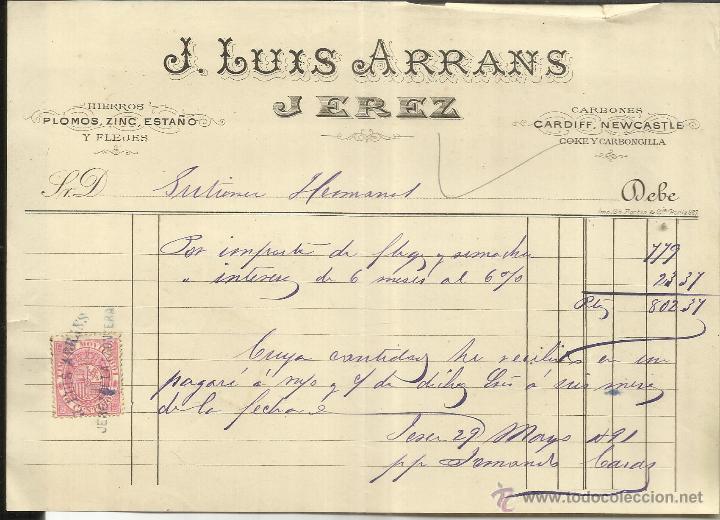 J. LUIS ARRANS
JEREZ
HIERROS
PLOMOS, ZINC, ESTAÑO
Y FLEJES
CARBONES
CARDIFF, NEWCASTLE
COKE Y CARBONCILLA
Sr. D Gutierrez Hermanos Debe
Por importe de fleje y remache 779
" intereses de 6 meses al 6% 23 37
Ptas 802 37
Cuya cantidad he recibido en un
pagaré á m/o y c/ de dichos Sres á seis meses
de la fecha
Jerez 29 Mayo 1891
pp Fernando
© www.todocoleccion.net